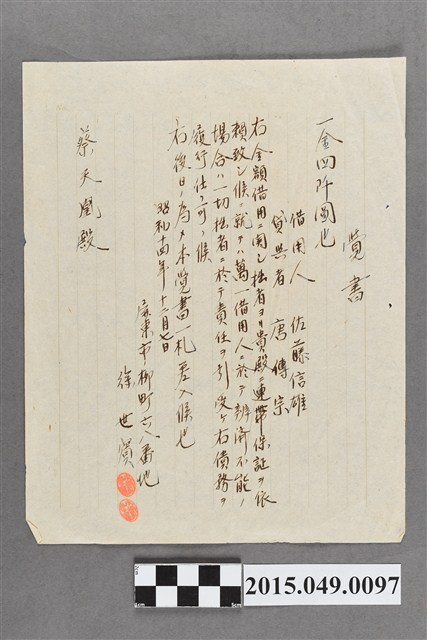 覚書
一金四阡圓也
借用人 佐藤信雄
貸与者 唐傳宗
右金額借用ニ関シ拙者ヨリ貴殿ニ連帯保証ヲ依
頼致シ候ニ就テハ萬一借用人ニ於テ辨済不能ノ
場合ハ一切拙者ニ於テ責任ヲ引受ケ右債務ヲ
履行仕ル可ク候
右後日ノ為メ本覚書一札差入候也
昭和十四年十二月七日
屏東市柳町六八番地
徐世賓
蔡天凰殿
2015.049.0097